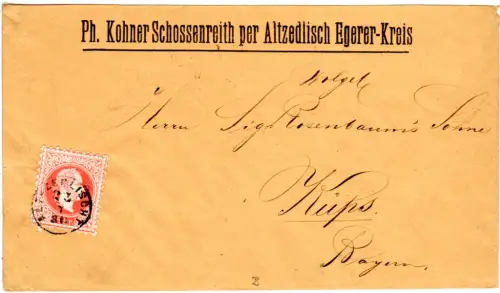 Ph. Kohner Schossenreith per Altzedlisch Egerer-Kreis
Wolgeb
Herrn Sig. Rosenbaum's Söhne
Küps
Bayern
ALTZEDLISCH